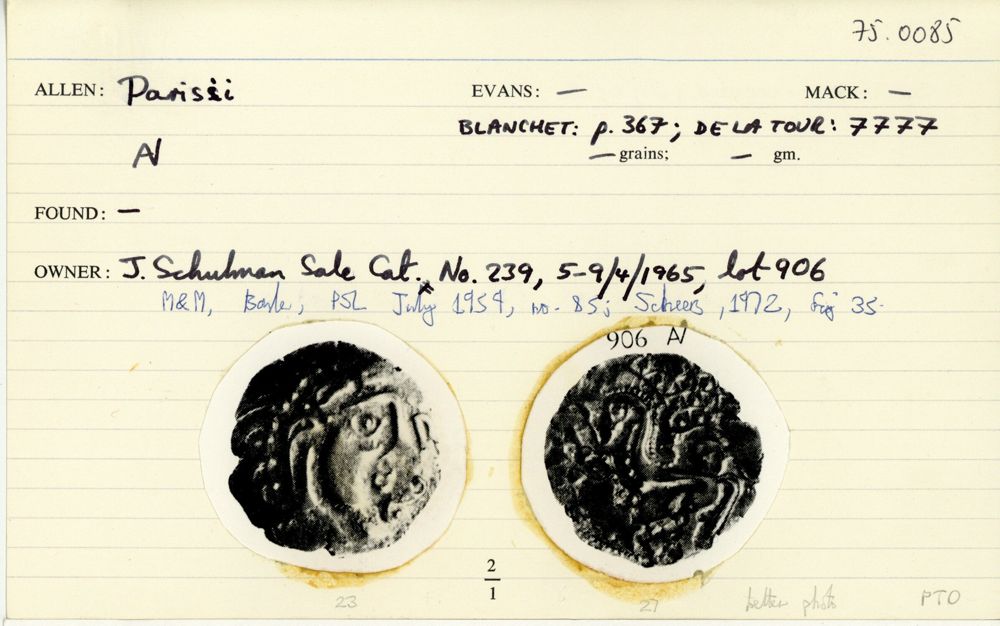 75.0085
ALLEN: Parisii EVANS: — MACK: —
BLANCHET: p. 367; DE LA TOUR: 7777
AV — grains; — gm.
FOUND: —
OWNER: J. Schulman Sale Cat. No. 239, 5-9/4/1965, lot 906
M&M, Basle, PSL July 1959, no. 85; Scheers, 1972, fig 35.
906 AV
2
1
23 27 better photo PTO